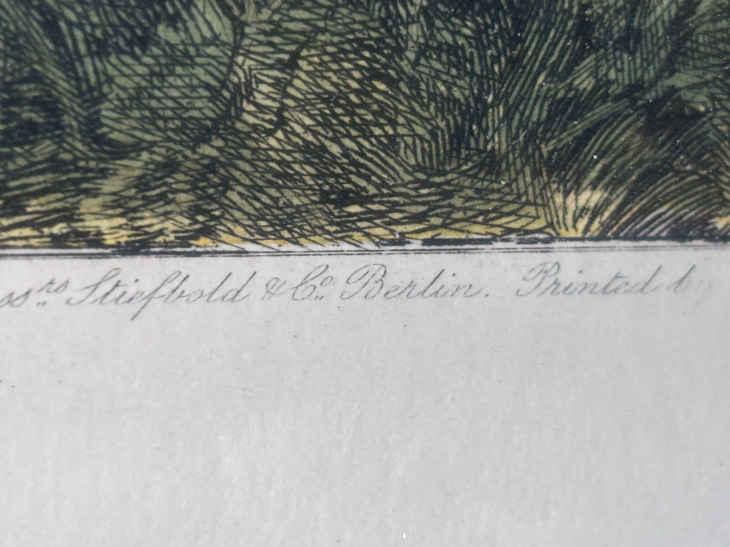 ssrs Stiefbold & Co. Berlin. Printed b